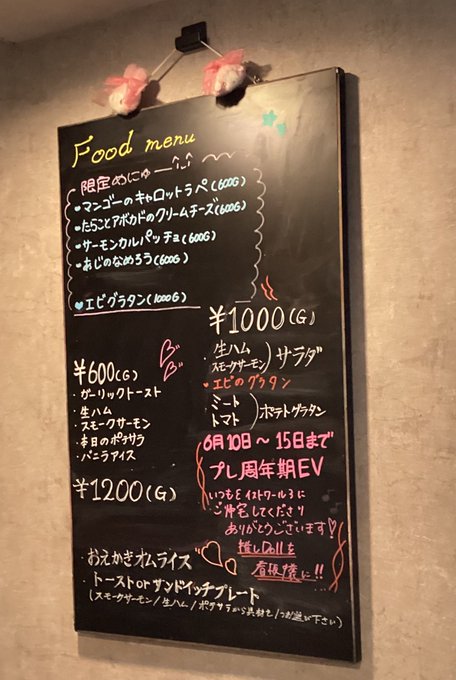 Food menu
限定めにゅー
・マンゴーのキャロットラペ(600G)
・たらことアボカドのクリームチーズ(600G)
・サーモンカルパッチョ(600G)
・あじのなめろう(600G)
エビグラタン(1000G)
¥600(G)
・ガーリックトースト
・生ハム
・スモークサーモン
・本日のポテサラ
・バニラアイス
¥1000(G)
・生ハム
スモークサーモン)サラダ
エビのグラタン
・ミート
トマト)ポテトグラタン
¥1200(G)
・おえかきオムライス
・トーストorサンドイッチプレート
(スモークサーモン/生ハム/ポテサラから具材を1つお選び下さい)
6月10日〜15日まで
プレ周年期EV
いつもEイストワール3に
ご帰宅してくださり
ありがとうございます!
推しDollを
看板嬢に!!